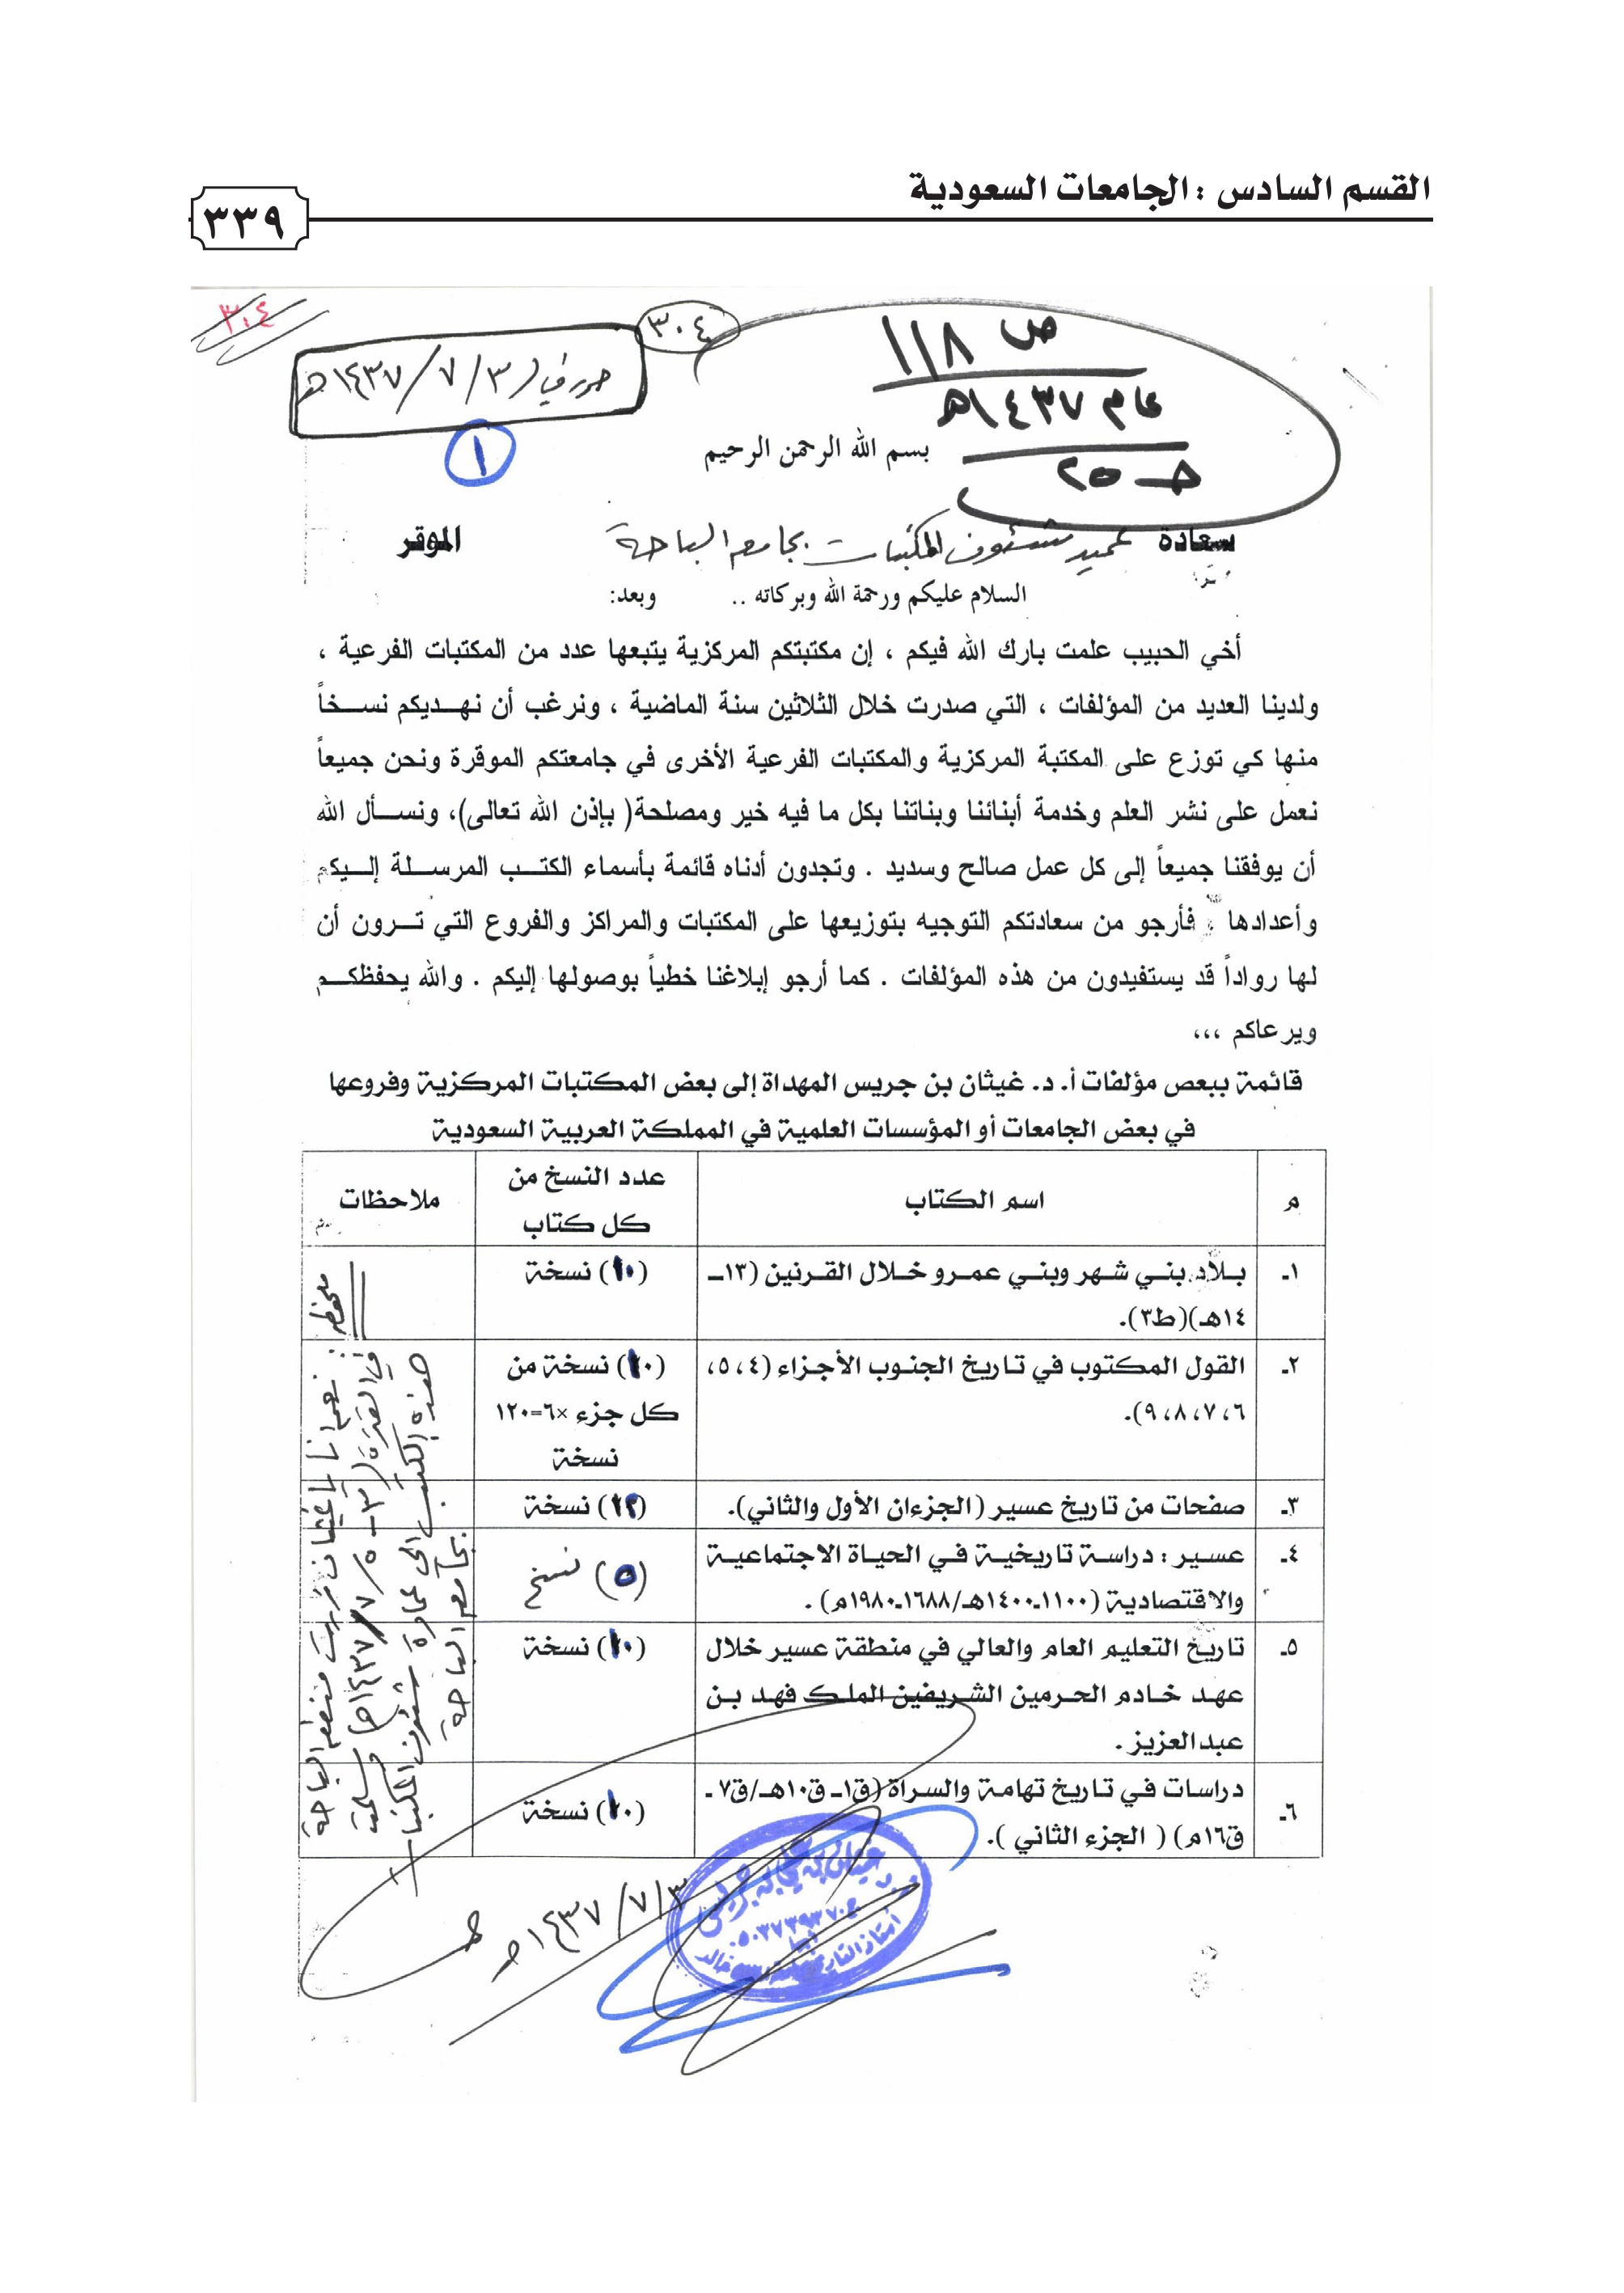 القسم السادس : الجامعات السعودية
٣٣٩
٣٠٤
٣٠٤
ص ١١٨
عام ١٤٣٧هـ
حـ ٢٥
حرر في ٣ / ٧ / ١٤٣٧هـ
١
بسم الله الرحمن الرحيم
سعادة عميد شئون المكتبات بجامعة الباحة الموقر
السلام عليكم ورحمة الله وبركاته .. وبعد:
أخي الحبيب علمت بارك الله فيكم ، إن مكتبتكم المركزية يتبعها عدد من المكتبات الفرعية ،
ولدينا العديد من المؤلفات ، التي صدرت خلال الثلاثين سنة الماضية ، ونرغب أن نهديكم نسخاً
منها كي توزع على المكتبة المركزية والمكتبات الفرعية الأخرى في جامعتكم الموقرة ونحن جميعاً
نعمل على نشر العلم وخدمة أبنائنا وبناتنا بكل ما فيه خير ومصلحة( بإذن الله تعالى)، ونسأل الله
أن يوفقنا جميعاً إلى كل عمل صالح وسديد . وتجدون أدناه قائمة بأسماء الكتب المرسلة إليكم
وأعدادها ، فأرجو من سعادتكم التوجيه بتوزيعها على المكتبات والمراكز والفروع التي ترون أن
لها رواداً قد يستفيدون من هذه المؤلفات . كما أرجو إبلاغنا خطياً بوصولها إليكم . والله يحفظكم
ويرعاكم ،،،
قائمة ببعص مؤلفات أ. د. غيثان بن جريس المهداة إلى بعض المكتبات المركزية وفروعها
في بعض الجامعات أو المؤسسات العلمية في المملكة العربية السعودية
م اسم الكتاب عدد النسخ من كل كتاب ملاحظات
١ـ بلاد بني شهر وبني عمرو خلال القرنين (١٣ـ (١٠) نسخة
١٤هـ)(ط٣).
٢ـ القول المكتوب في تاريخ الجنوب الأجزاء (٤، ٥، (١٠) نسخة من
٦، ٧، ٨، ٩). كل جزء ×٦=١٢٠
نسخة
٣ـ صفحات من تاريخ عسير (الجزءان الأول والثاني). (١٢) نسخة
٤ـ عسير : دراسة تاريخية في الحياة الاجتماعية (٥) نسخ
والاقتصادية (١١٠٠ـ١٤٠٠هـ/١٦٨٨ـ١٩٨٠م) .
٥ـ تاريخ التعليم العام والعالي في منطقة عسير خلال (١٠) نسخة
عهد خادم الحرمين الشريفين الملك فهد بن
عبدالعزيز .
٦ـ دراسات في تاريخ تهامة والسراة (ق١ـ ق١٠هـ/ق٧ـ (١٠) نسخة
ق١٦م) ( الجزء الثاني ).
ملحوظة :
نعم انا يا غيثان زرت منطقة الباحة
في الفترة (٣ـ ٥ / ٧ / ١٤٣٧هـ) وسلمت
هذه الكتب إلى عمادة شئون المكتبات
بجامعة الباحة
٣ / ٧ / ١٤٣٧هـ